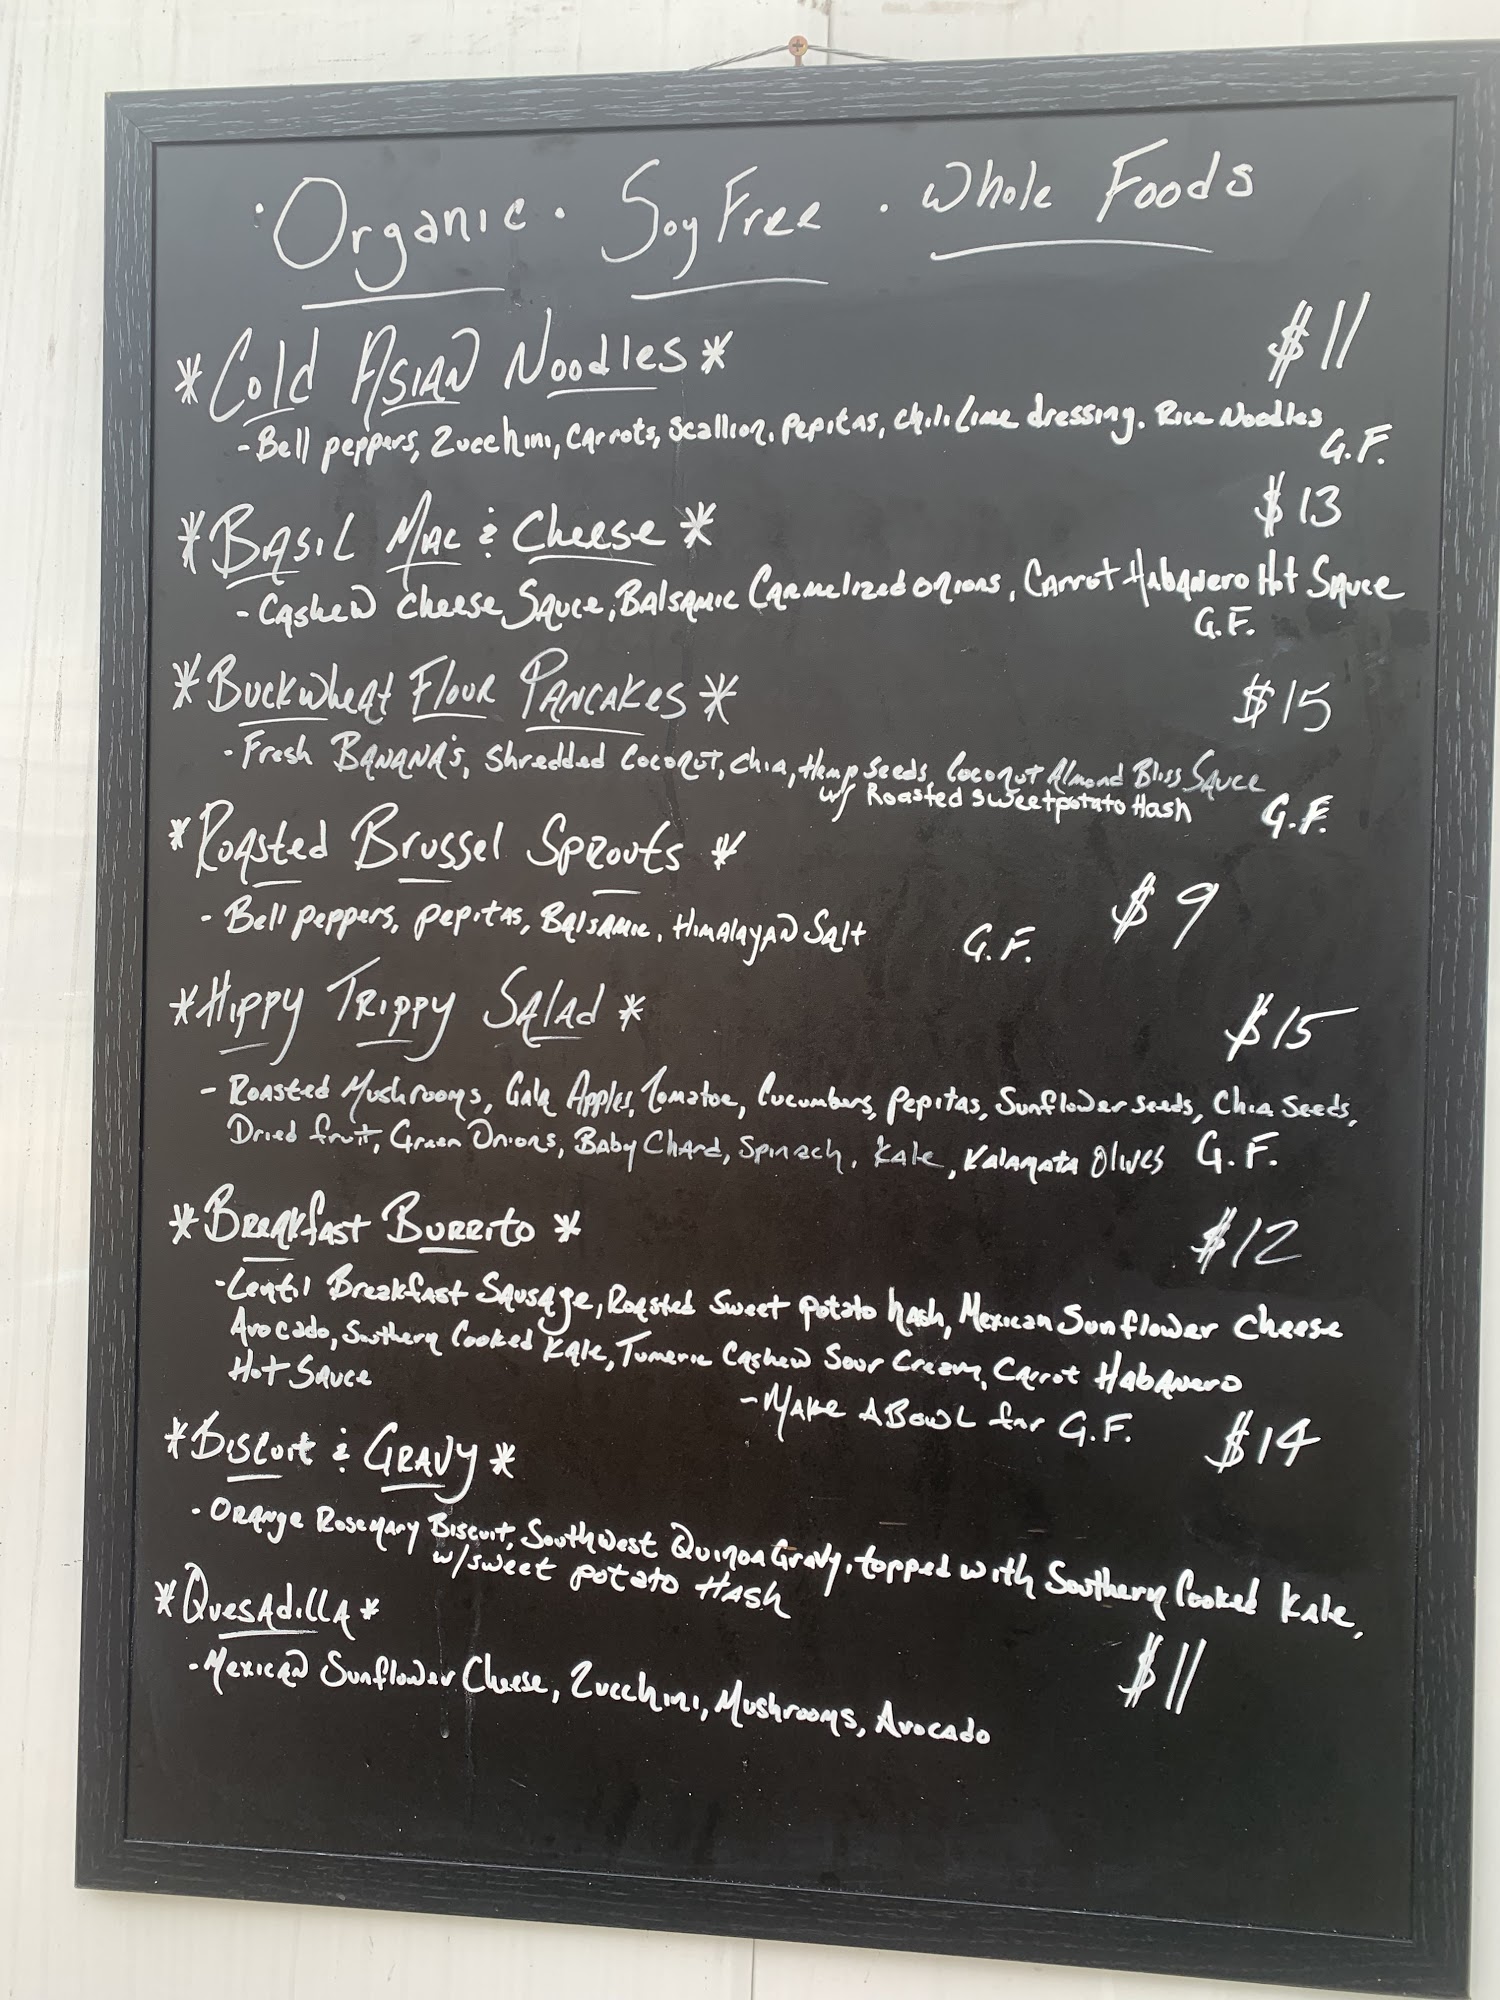 · Organic · Soy Free · Whole Foods
*Cold Asian Noodles* $11
- Bell peppers, Zucchini, Carrots, Scallion, Pepitas, Chili Lime dressing. Rice Noodles
G.F.
*Basil Mac & Cheese* $13
- Cashew Cheese Sauce, Balsamic Carmelized onions, Carrot Habanero Hot Sauce
G.F.
*Buckwheat Flour Pancakes* $15
- Fresh Banana's, Shredded Coconut, Chia, Hemp Seeds, Coconut Almond Bliss Sauce
w/ Roasted Sweetpotato Hash G.F.
*Roasted Brussel Sprouts* $9
- Bell peppers, pepitas, Balsamic, Himalayan Salt G.F.
*Hippy Trippy Salad* $15
- Roasted Mushrooms, Gala Apples, Tomatoe, Cucumbers, Pepitas, Sunflower seeds, Chia Seeds,
Dried fruit, Green Onions, Baby Chard, Spinach, Kale, Kalamata Olives G.F.
*Breakfast Burrito* $12
- Lentil Breakfast Sausage, Roasted Sweet potato hash, Mexican Sunflower Cheese
Avocado, Southern Cooked Kale, Tumeric Cashew Sour Cream, Carrot Habanero
Hot Sauce
- Make A Bowl for G.F.
*Biscuit & Gravy* $14
- Orange Rosemary Biscuit, Southwest Quinoa Gravy, topped with Southern Cooked Kale,
w/sweet potato Hash
*Quesadilla* $11
- Mexican Sunflower Cheese, Zucchini, Mushrooms, Avocado